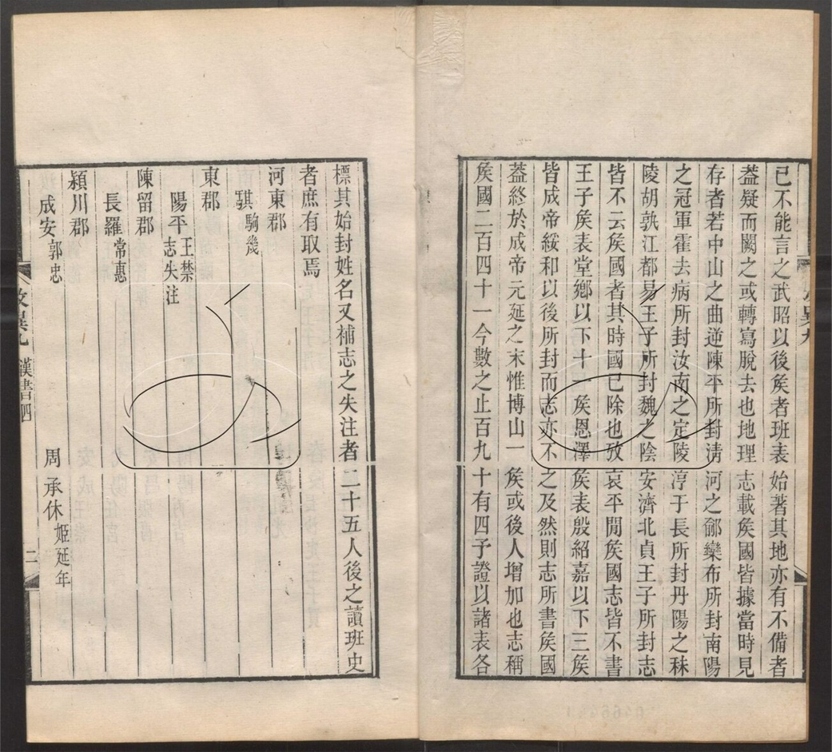 已不能言之武昭以後矦者班表始著其地亦有不備者
葢疑而闕之或轉寫脫去也地理志載矦國皆據當時見
存者若中山之曲逆陳平所封清河之鄃欒布所封南陽
之冠軍霍去病所封汝南之定陵淳于長所封丹陽之秣
陵胡孰江都易王子所封魏之陰安濟北貞王子所封志
皆不云矦國者其時國已除也攷哀平閒矦國志皆不書
王子矦表堂鄉以下十一矦恩澤矦表殷紹嘉以下三矦
皆成帝綏和以後所封而志亦不之及然則志所書矦國
葢終於成帝元延之末惟博山一矦或後人增加也志稱
矦國二百四十一今數之止百九十有四予證以諸表各
標其始封姓名又補志之失注者二十五人後之讀班史
者庶有取焉
河東郡
騏駒幾
東郡
陽平王禁志失注
陳留郡
長羅常惠
潁川郡
成安郭忠 周承休姬延年
攷異九 漢書四
二